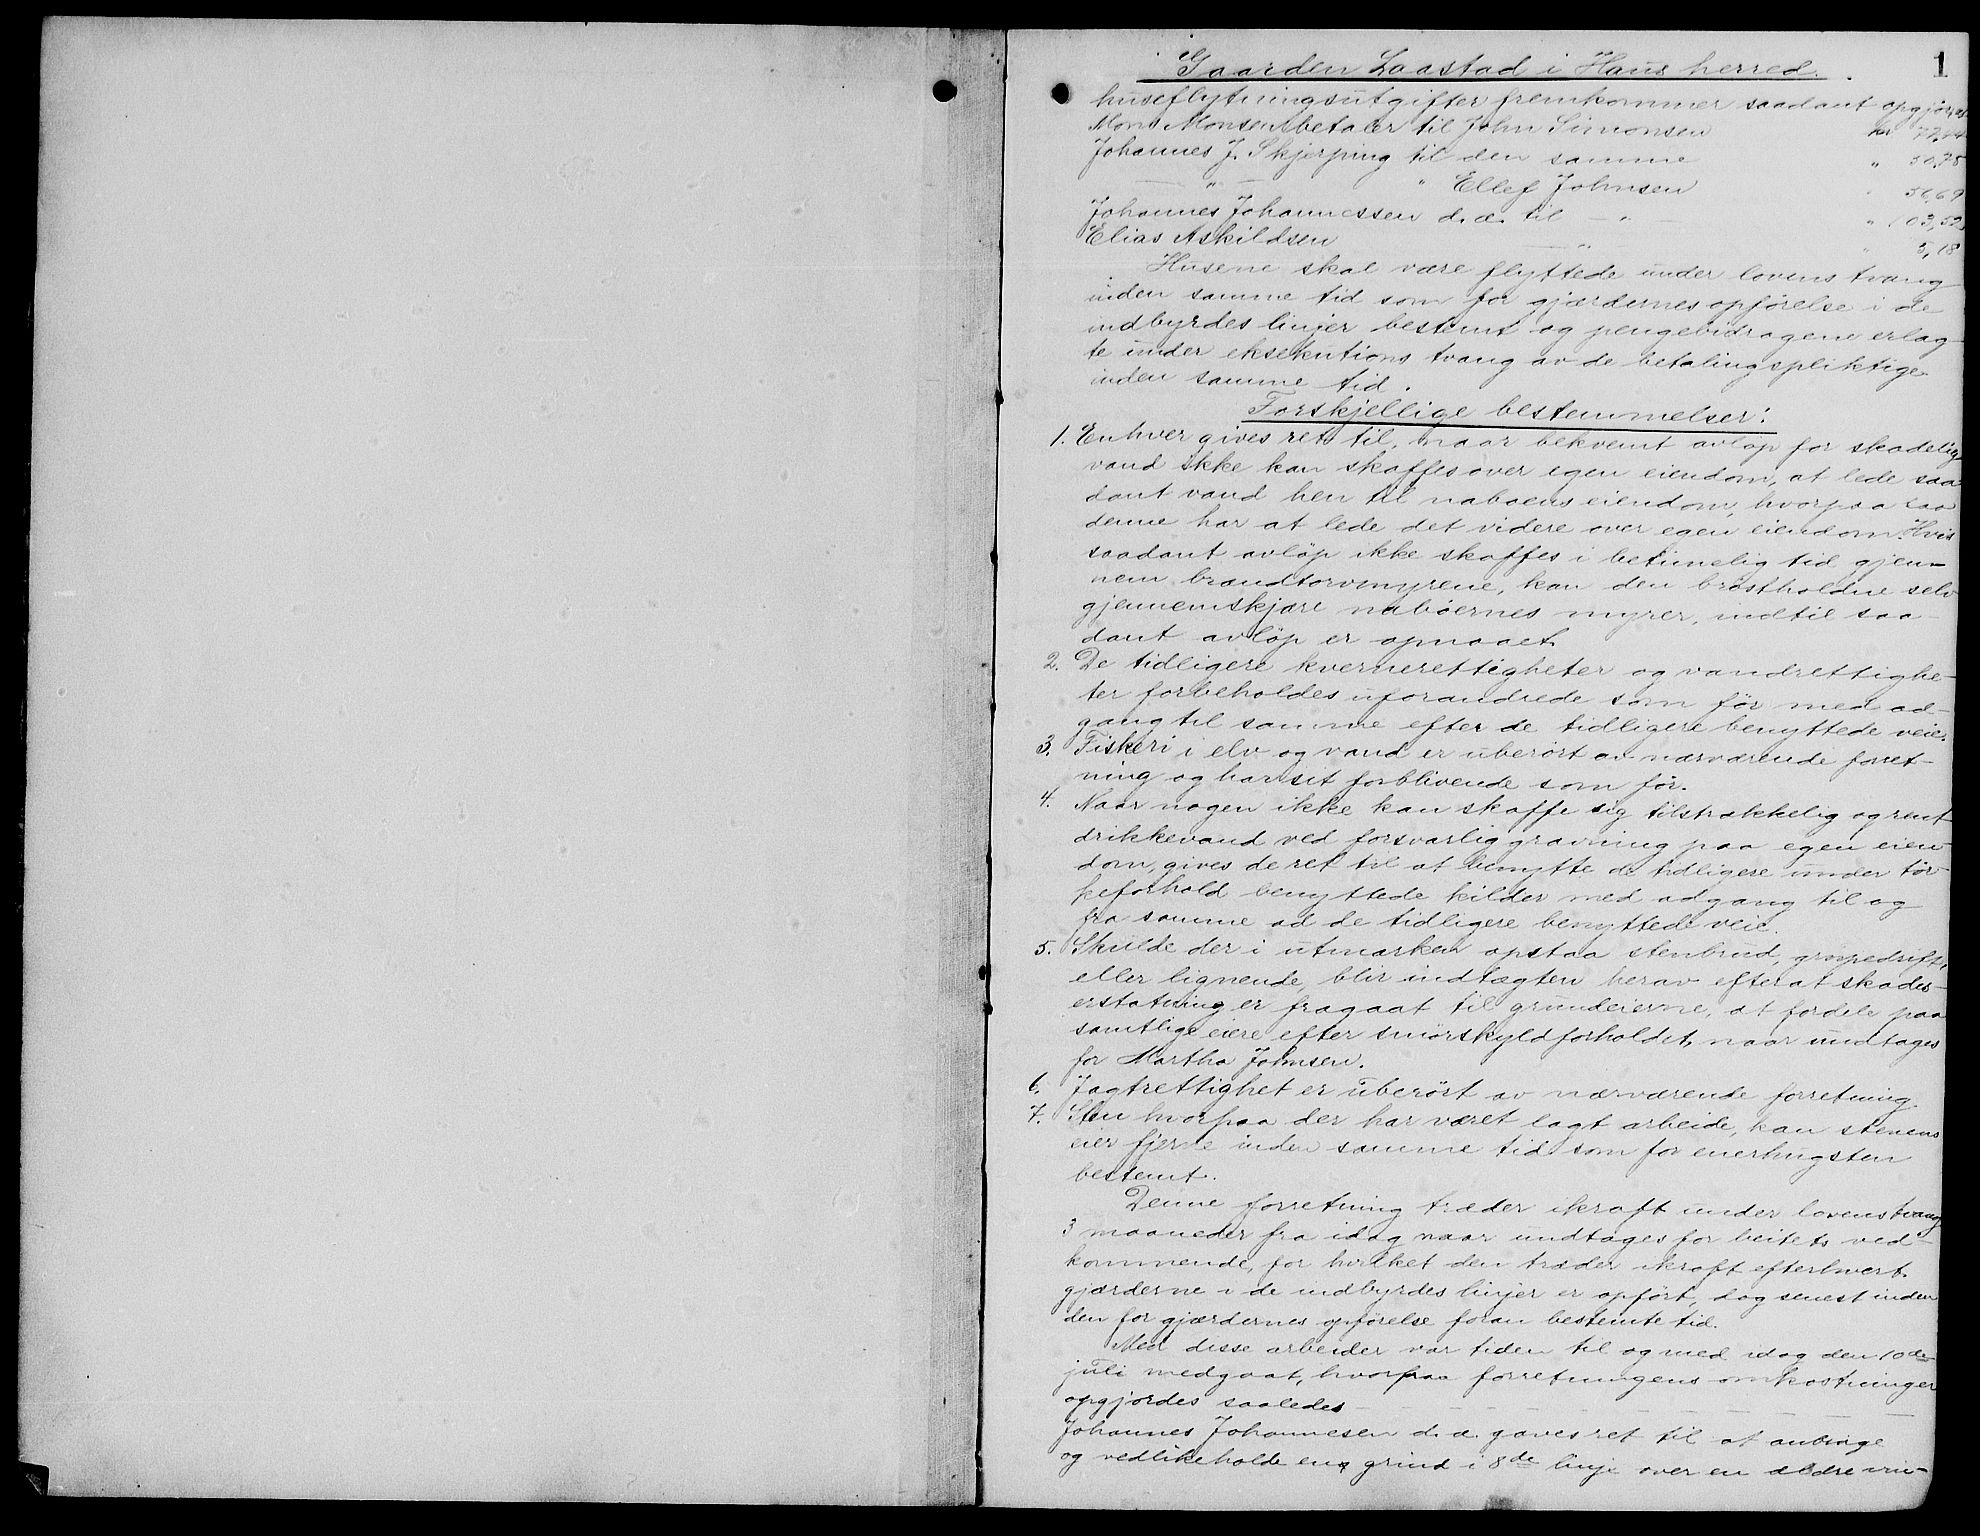 1
Gaarden Laastad i Haus herred.
huseflytningsutgifter fremkommer saadant opgjør, at
Mons Monsen betaler til John Simonsen kr 77,
Johannes J. Skjerping til den samme " 50,75
— " — " Ellef Johnsen 56,69
Johannes Johannessen d.æ. til — " — " 103,52
Elias Askildsen — " — " 5,18
Husene skal være flyttede under lovens tvang
inden samme tid som for gjærdernes opførelse i de
indbyrdes linjer bestemt og pengebidragene erlag-
te under eksekutions tvang av de betalingspliktige
inden samme tid.
Forskjellige bestemmelser:
1. Enhver gives ret til, naar bekvemt avløp for skadelig
vand ikke kan skaffes over egen eiendom, at lede saa-
dant vand hen til naboens eiendom, hvorpaa saa
denne har at lede det videre over egen eiendom. Hvis
saadant avløp ikke skaffes i betimelig tid gjen-
nem brandtorvmyrene, kan den brøstholdne selv
gjennemskjære naboernes myrer, indtil saa-
dant avløp er opnaaet.
2. De tidligere kvernerettigheter og vandrettighe-
ter forbeholdes uforandrede som før med ad-
gang til samme efter de tidligere benyttede veie.
3. Fiskeri i elv og vand er uberørt av nærværende forret-
ning og har sit forblivende som før.
4. Naar nogen ikke kan skaffe sig tilstrækkelig og rent
drikkevand ved forsvarlig gravning paa egen eien-
dom, gives de ret til at benytte de tidligere under tør-
keforhold benyttede kilder med adgang til og
fra samme ad de tidligere benyttede veie.
5. Skulde der i utmarken opstaa stenbrud, grubedrift,
eller lignende, blir indtægten herav efterat skades-
erstatning er fragaat til grundeierne, at fordele paa
samtlige eiere efter smørskyldforholdet, naar undtages
for Martha Johnsen.
6. Jagtrettighet er uberørt av nærværende forretning.
7. Sten hvorpaa der har været lagt arbeide, kan stenens
eier fjerne inden samme tid som for enerhugsten
bestemt.
Denne forretning træder ikraft under lovens tvang
3 maaneder fra idag naar undtages for beitets ved-
kommende, for hvilket den træder ikraft efterhvert
gjærderne i de indbyrdes linjer er opført, dog senest inden
den for gjærdernes opførelse foran bestemte tid.
Med disse arbeider var tiden til og med idag den 10de
juli medgaat, hvorpaa forretningens omkostninger
opgjordes saaledes — — — — — — — —
Johannes Johannesen d.æ. gaves ret til at anbringe
og vedlikeholde en grind i 8de linje over en ældre vin-